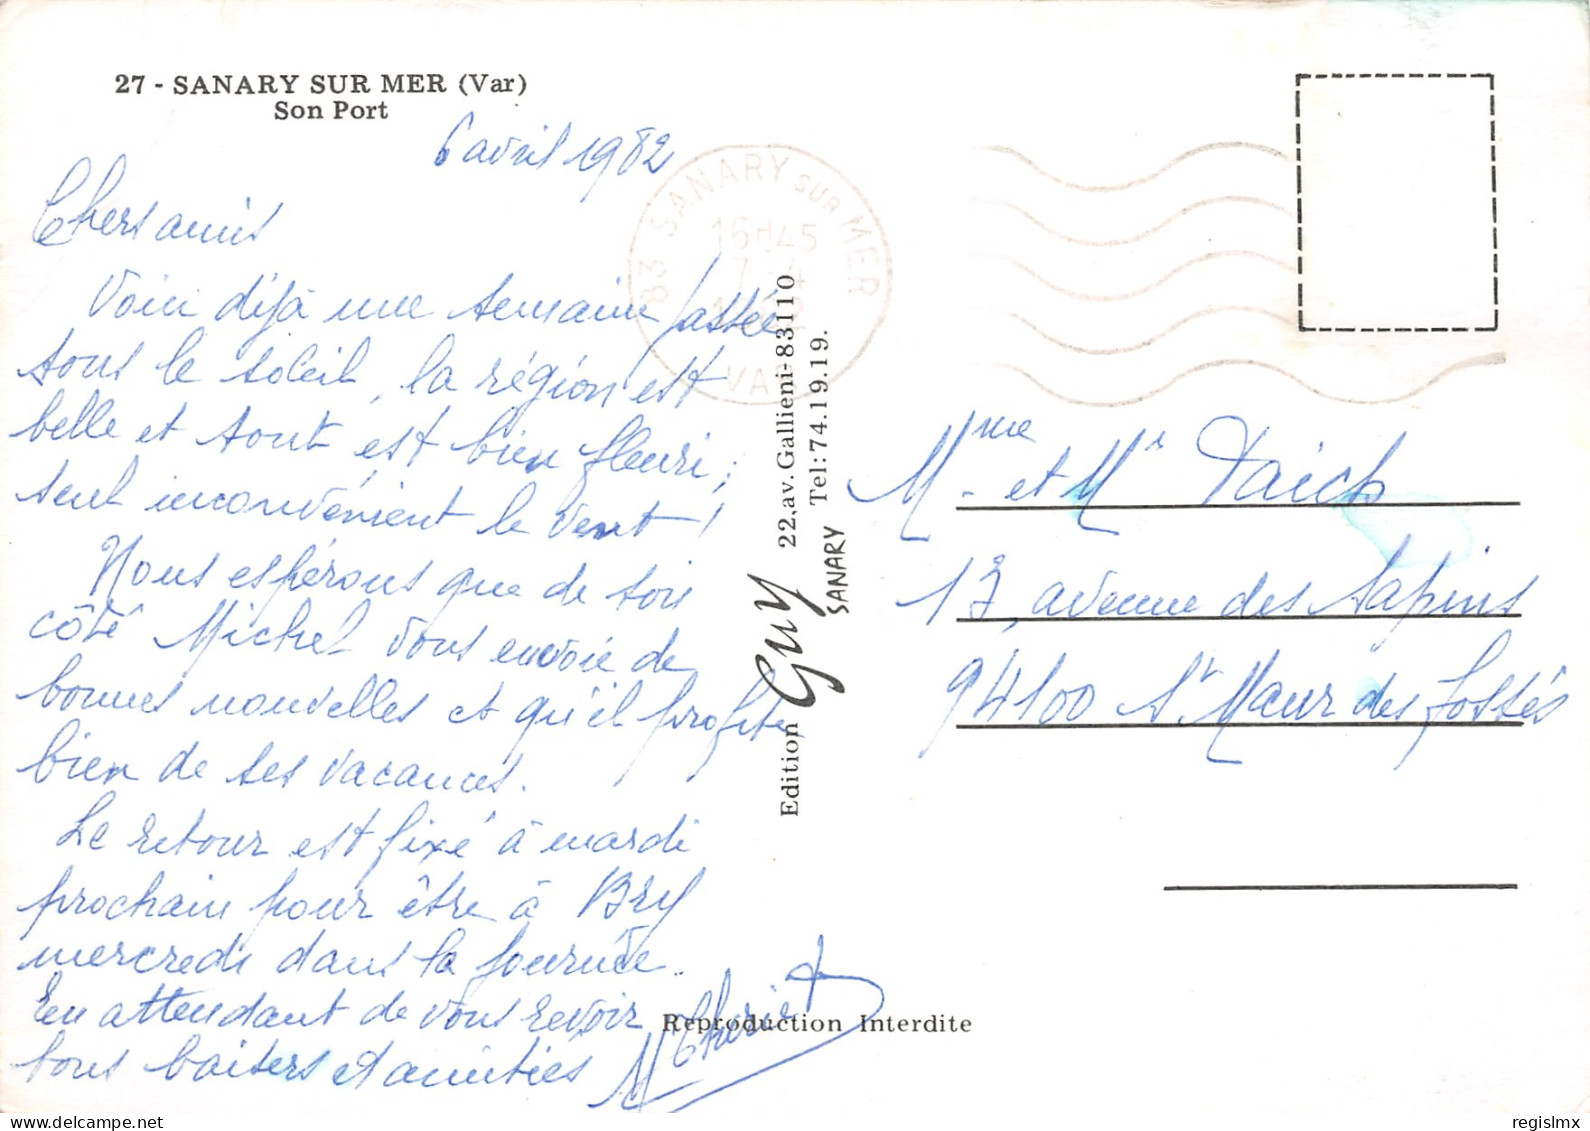 27 - SANARY SUR MER (Var)
Son Port
6 avril 1982
Chers amis
Voici déjà une semaine passée
sous le soleil, la région est
belle et tout est bien fleuri ;
seul inconvénient le vent !
Nous espérons que de son
côté Michel vous envoie de
bonnes nouvelles et qu'il profite
bien de ses vacances.
Le retour est fixé à mardi
prochain pour être à Bry
mercredi dans la journée.
En attendant de vous revoir
bons baisers et amitiés
83 SANARY SUR MER
16H45
VAR
Edition Guy 22,av. Gallieni-83110
SANARY Tel: 74.19.19.
Mme et Mr
13, avenue des Sapins
94100 St Maur des Fossés
Reproduction Interdite
regislmx
delcampe.net